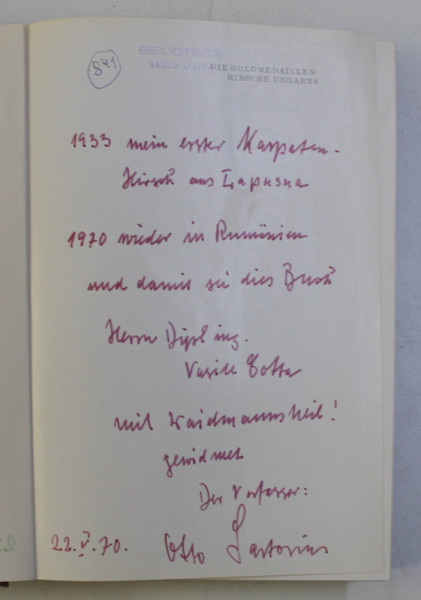 BIBLIOTECA
841
DIE GOLDMEDAILLEN-
HIRSCHE UNGARNS
1933 mein erster Karpaten-
Hirsch aus Lapusna
1970 wieder in Rumänien
und damit sei dies Buch
Herrn Dipl. ing.
Vasile Cotta
mit Waidmannsheil!
gewidmet
Der Verfasser:
22.V.70. Otto Sartorius